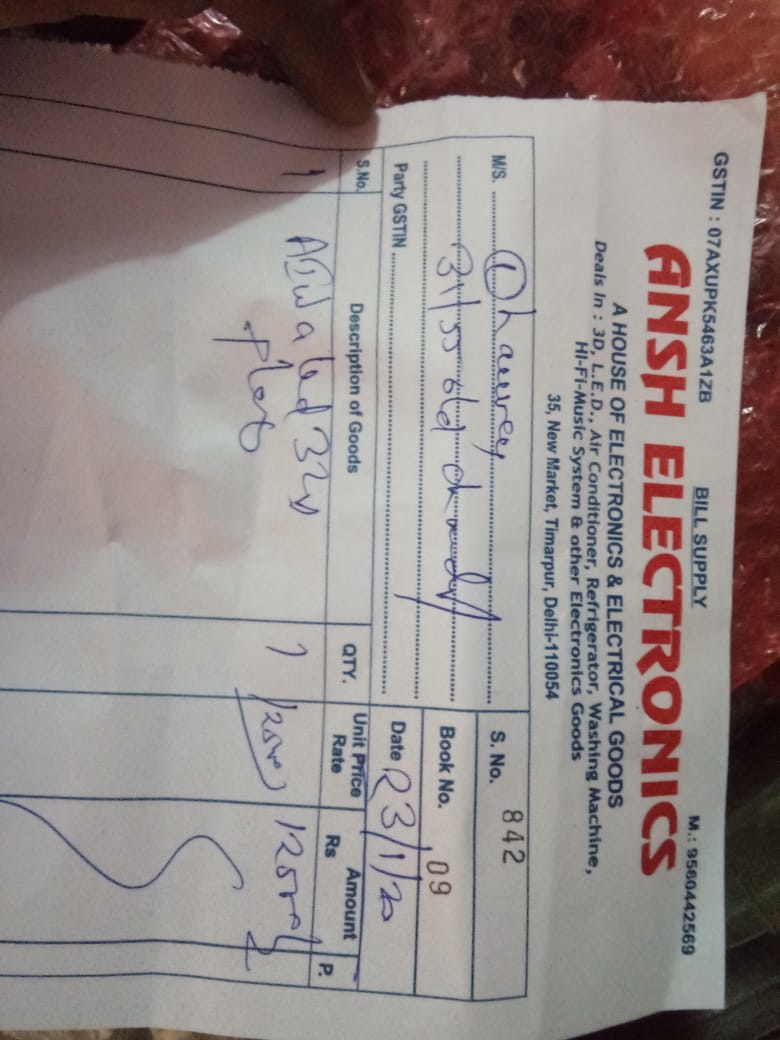 GSTIN : 07AXUPK5463A1ZB BILL SUPPLY M.: 9560442569
ANSH ELECTRONICS
A HOUSE OF ELECTRONICS & ELECTRICAL GOODS
Deals in : 3D, L.E.D., Air Conditioner, Refrigerator, Washing Machine,
Hi-Fi-Music System & other Electronics Goods
35, New Market, Timarpur, Delhi-110054
M/S.
S. No. 842
31/55 old
Book No. 09
Party GSTIN
Date 23/1/20
S.No. Description of Goods QTY. Unit Price Rate Amount Rs P.
1 led 32 1